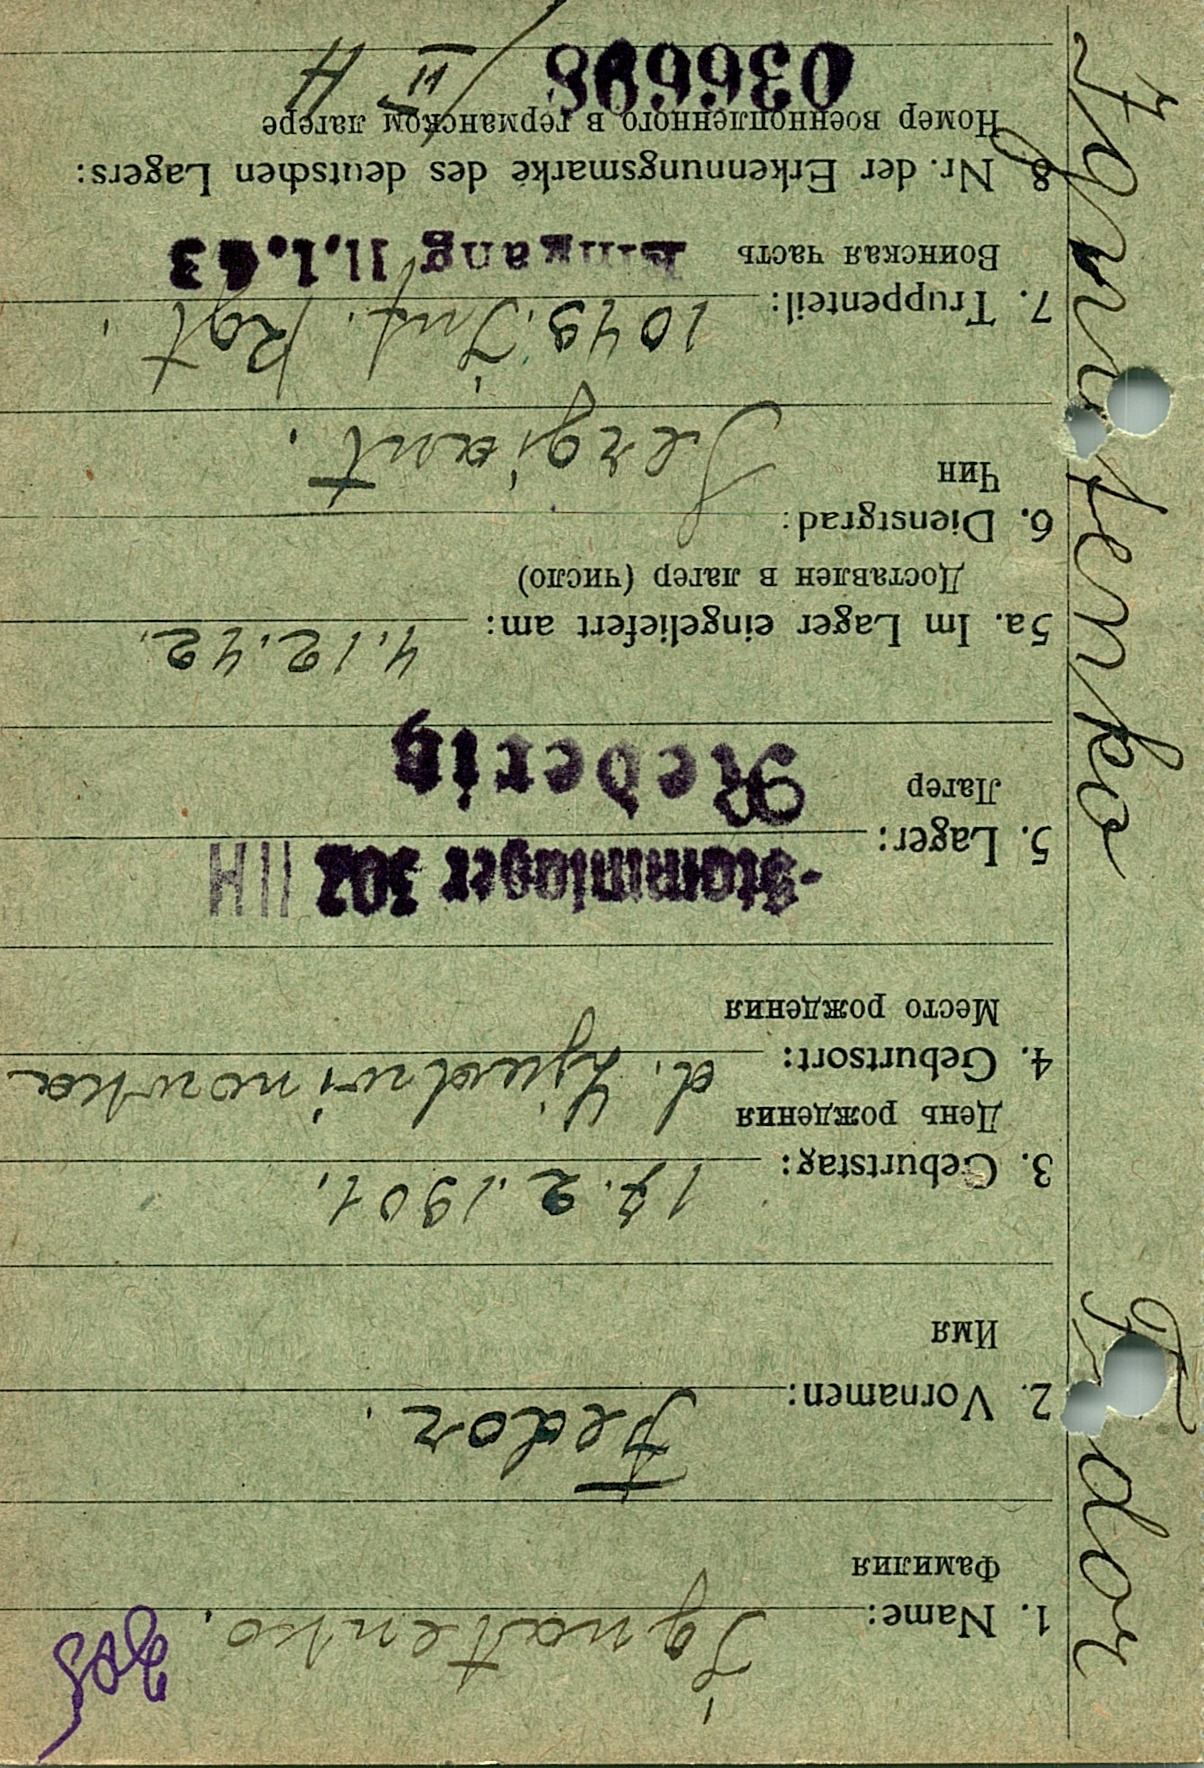 1. Name: Ignatenko.
Фамилия
2. Vornamen: Fedor.
Имя
3. Geburtstag: 17.2.1901.
День рождения
4. Geburtsort: d. Ljudwinowka
Место рождения
-Stammlager 302 IIH
5. Lager:
Лагер Rederitz
5a. Im Lager eingeliefert am: 4.12.42.
Доставлен в лагер (число)
6. Dienstgrad: Sergiant.
Чин
7. Truppenteil: 1049. Inf. Rgt.
Воинская часть Eingang 11.1.43
8. Nr. der Erkennungsmarke des deutschen Lagers:
Номер военнопленного в германском лагере
036698 / II H
Ignatenko
Fedor